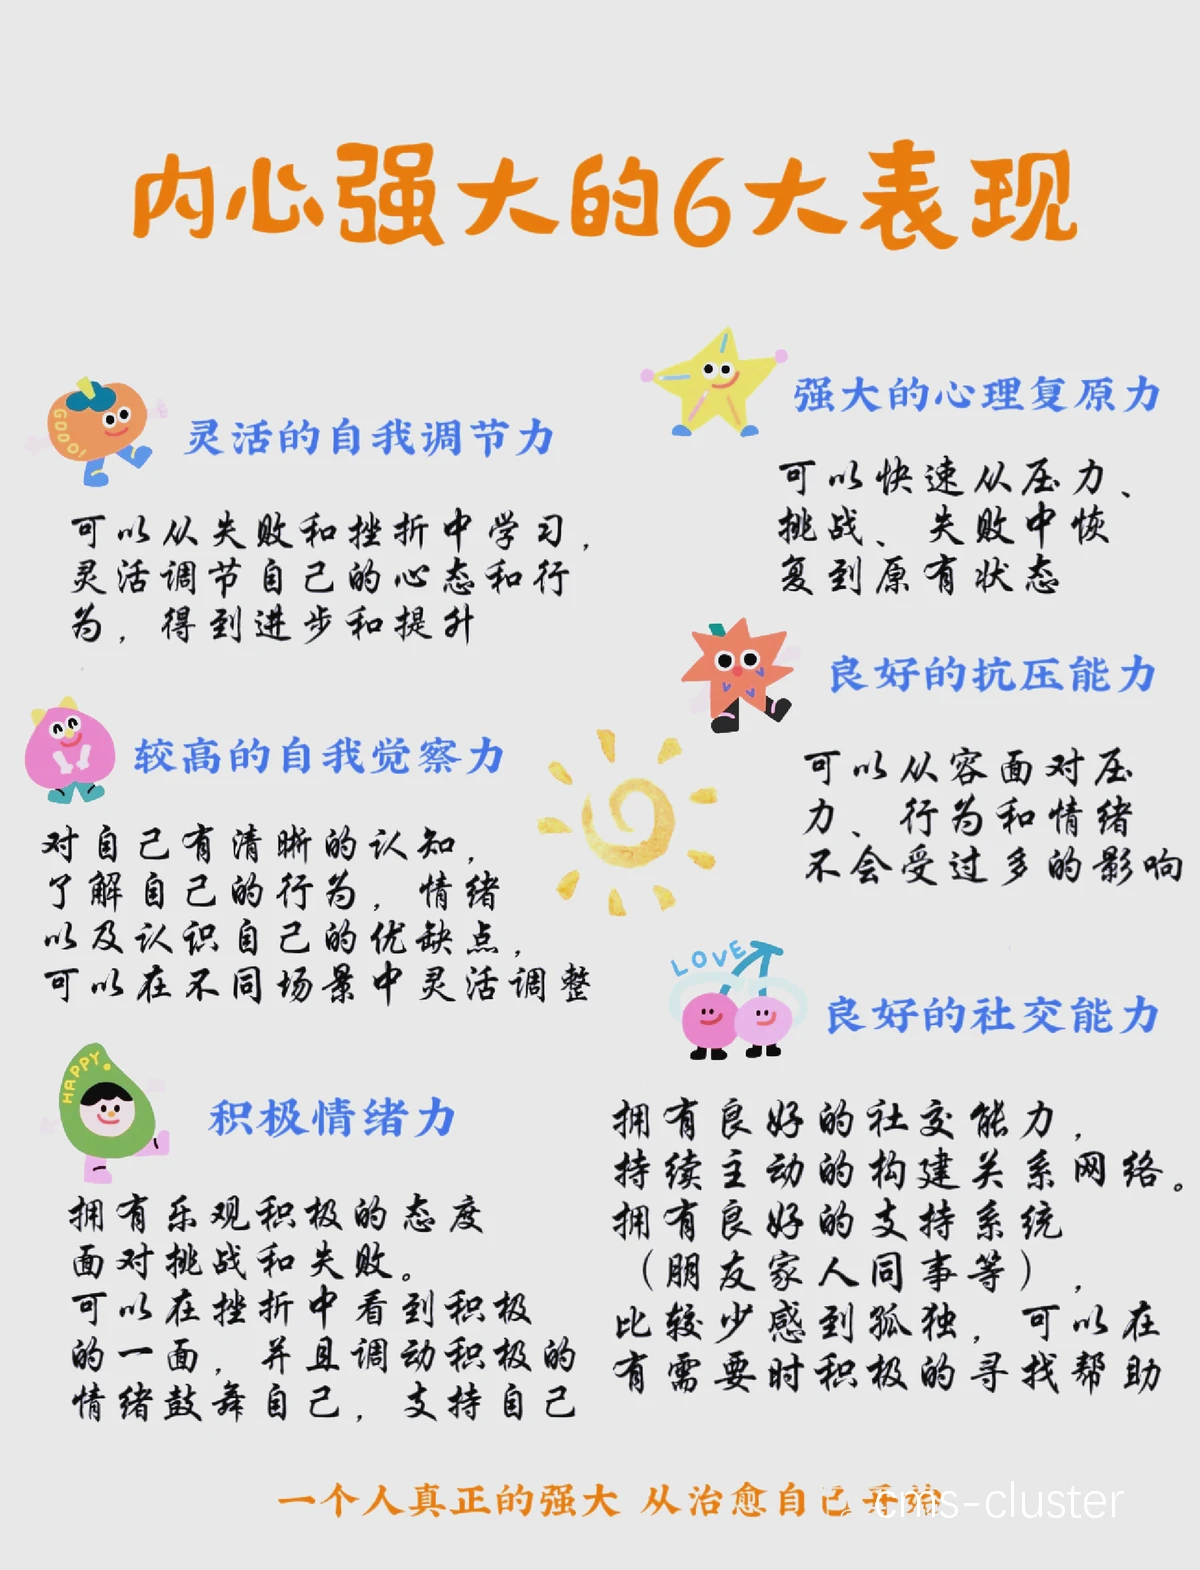 内心强大的6大表现
GOOD!
灵活的自我调节力
可以从失败和挫折中学习,
灵活调节自己的心态和行
为,得到进步和提升
强大的心理复原力
可以快速从压力、
挑战、失败中恢
复到原有状态
较高的自我觉察力
对自己有清晰的认知,
了解自己的行为,情绪
以及认识自己的优缺点,
可以在不同场景中灵活调整
良好的抗压能力
可以从容面对压
力、行为和情绪
不会受过多的影响
HAPPY.
积极情绪力
拥有乐观积极的态度
面对挑战和失败。
可以在挫折中看到积极
的一面,并且调动积极的
情绪鼓舞自己,支持自己
LOVE
良好的社交能力
拥有良好的社交能力,
持续主动的构建关系网络。
拥有良好的支持系统
(朋友家人同事等),
比较少感到孤独,可以在
有需要时积极的寻找帮助
一个人真正的强大 从治愈自己开始
cms-cluster